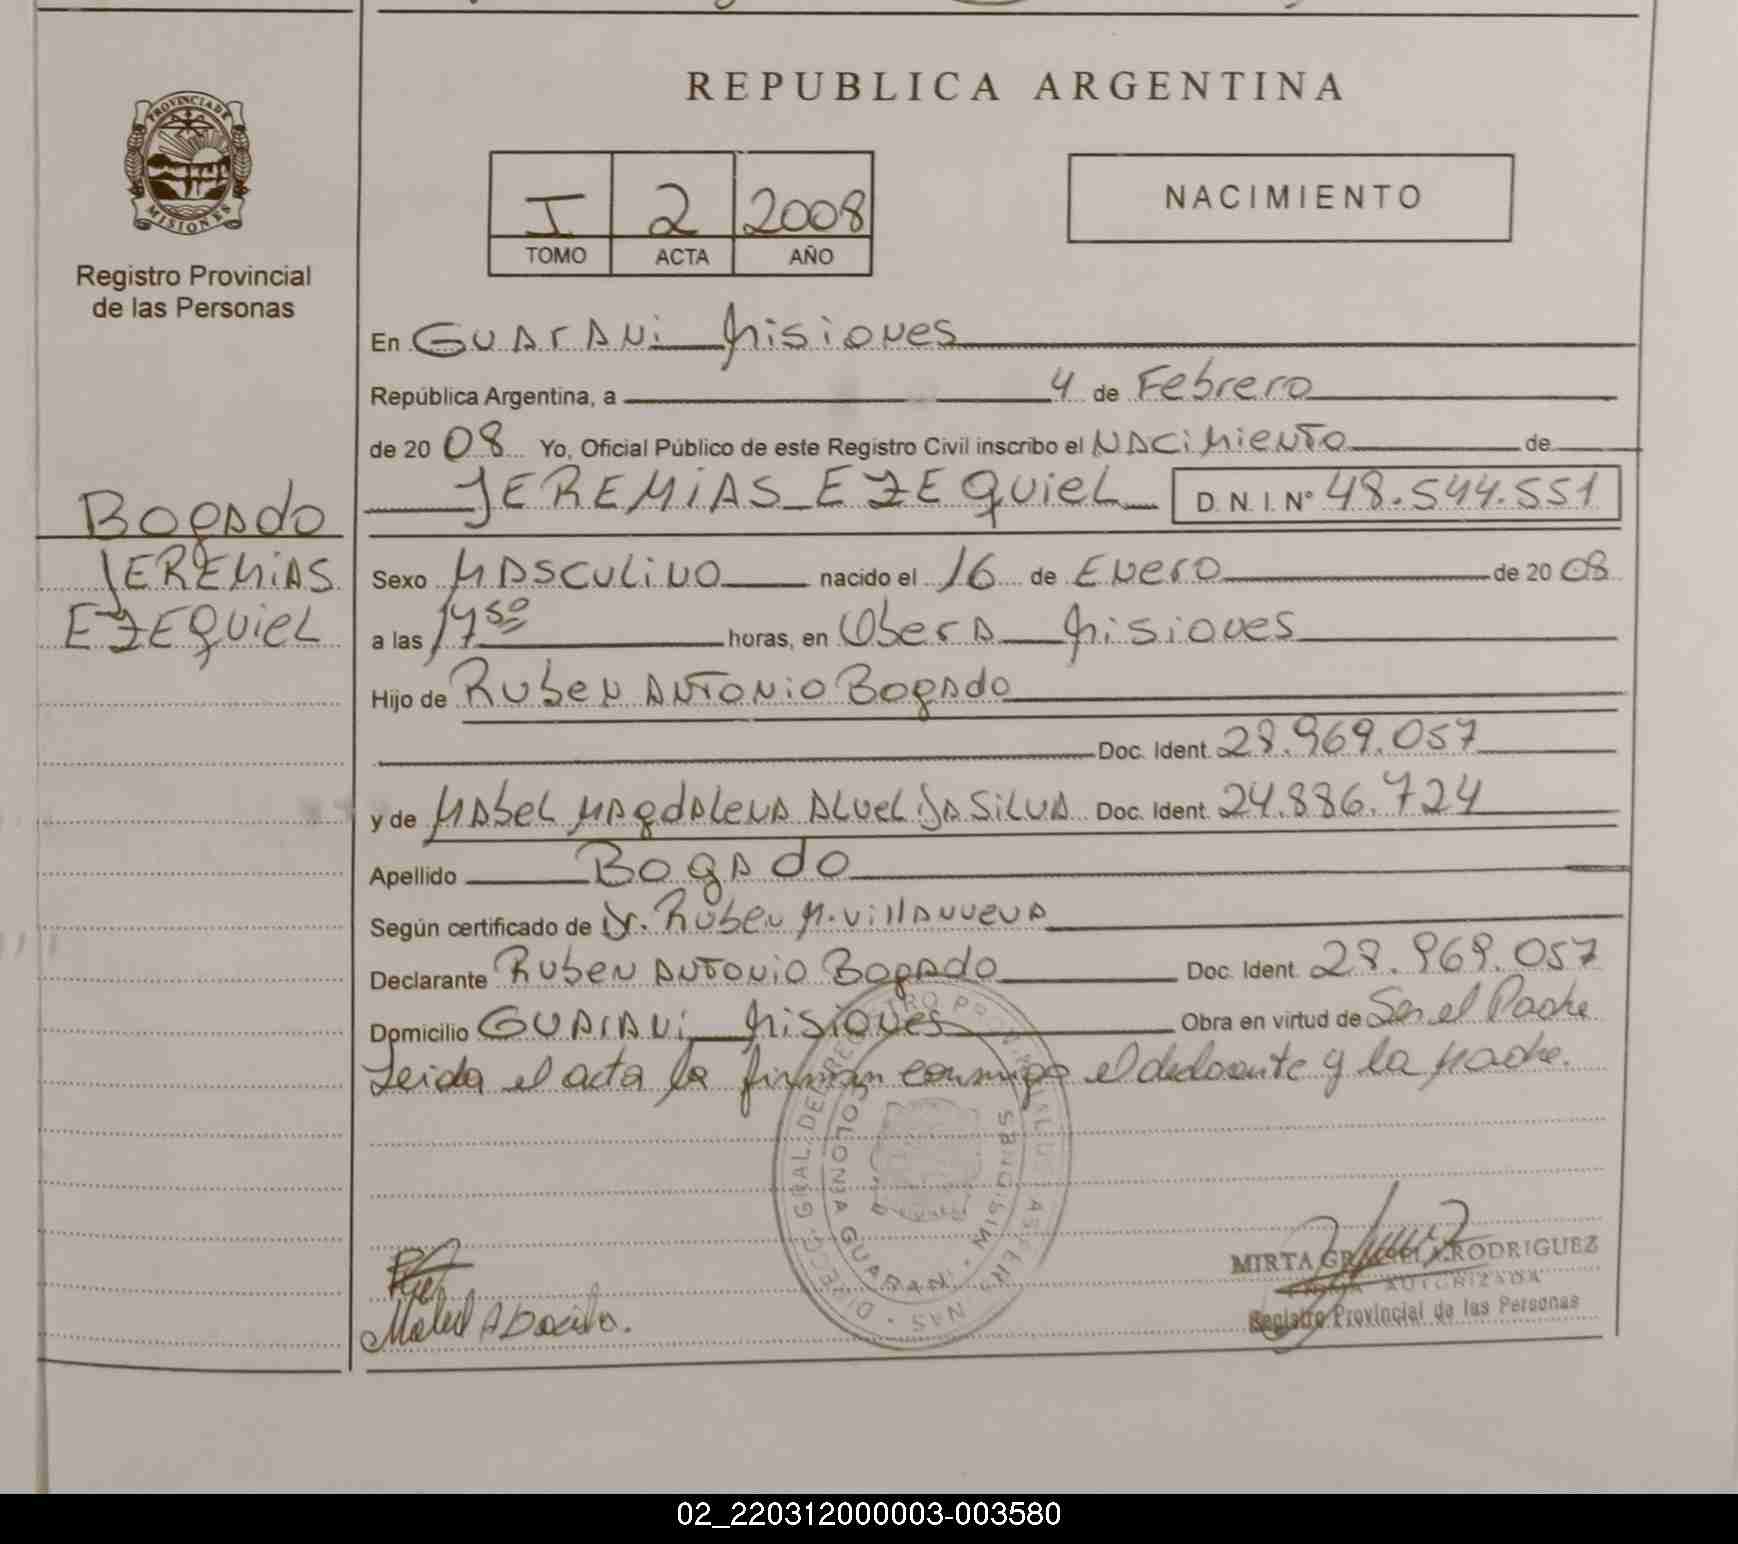 REPUBLICA ARGENTINA
PROVINCIA DE
MISIONES
Registro Provincial
de las Personas
I 2 2008
TOMO ACTA AÑO
NACIMIENTO
En GUARANi Misiones
República Argentina, a 4 de Febrero
de 20 08 Yo, Oficial Público de este Registro Civil inscribo el NACiMiENTO de
JEREMiAS EZEQUiEL D.N.I. Nº 48.544.551
Bogado
JEREMiAS
EZEQUiEL
Sexo MASCULiNO nacido el 16 de ENERO de 20 08
a las 17 50 horas, en Oberá Misiones
Hijo de Ruben ANTONiO Bogado
Doc. Ident. 28.969.057
y de MAbEL MAgdALENA ALVEL DA SiLVA Doc. Ident. 24.886.724
Apellido Bogado
Según certificado de Dr. Ruben M. Villanueva
Declarante Ruben ANTONiO Bogado Doc. Ident. 28.969.057
Domicilio GUARANi Misiones Obra en virtud de Ser el Padre
Leida el acta la firman conmigo el declarante y la madre.
DIRECC. GRAL. DEL REGISTRO PROVINCIAL DE LAS PERSONAS
COLONIA GUARANI · MISIONES
MIRTA GRACIELA RODRIGUEZ
FIRMA AUTORIZADA
Registro Provincial de las Personas
02_220312000003-003580